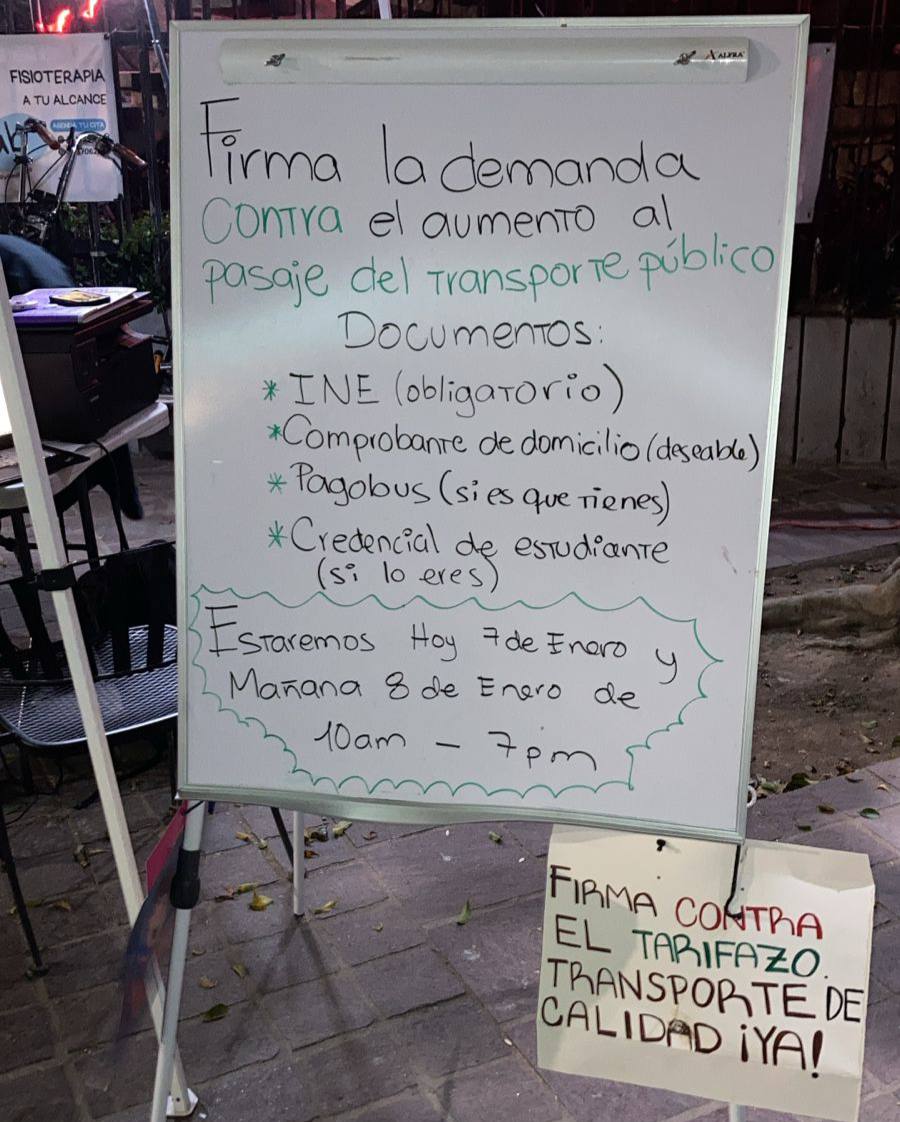 FISIOTERAPIA
A TU ALCANCE
AGENDA TU CITA
ALFRA
Firma la demanda
contra el aumento al
pasaje del transporte público
Documentos:
* INE (obligatorio)
* Comprobante de domicilio (deseable)
* Pagobus (si es que tienes)
* Credencial de estudiante
(si lo eres)
Estaremos Hoy 7 de Enero y
Mañana 8 de Enero de
10am - 7pm
FIRMA CONTRA
EL TARIFAZO.
TRANSPORTE DE
CALIDAD ¡YA!